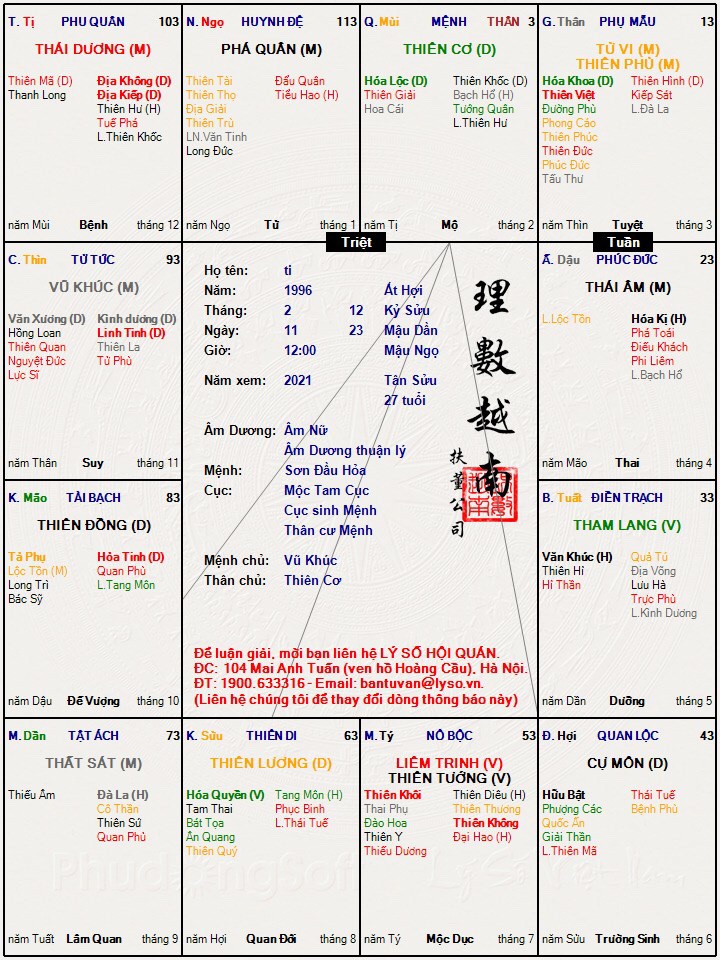 T. Tị PHU QUÂN 103
THÁI DƯƠNG (M)
Thiên Mã (D) Địa Không (D)
Thanh Long Địa Kiếp (D)
Thiên Hư (H)
Tuế Phá
L.Thiên Khốc
năm Mùi Bệnh tháng 12
N. Ngọ HUYNH ĐỆ 113
PHÁ QUÂN (M)
Thiên Tài Đẩu Quân
Thiên Thọ Tiểu Hao (H)
Địa Giải
Thiên Trù
LN.Văn Tinh
Long Đức
năm Ngọ Tử tháng 1
Q. Mùi MỆNH THÂN 3
THIÊN CƠ (D)
Hóa Lộc (D) Thiên Khốc (D)
Thiên Giải Bạch Hổ (H)
Hoa Cái Tướng Quân
L.Thiên Hư
năm Tị Mộ tháng 2
G. Thân PHỤ MẪU 13
TỬ VI (M)
THIÊN PHỦ (M)
Hóa Khoa (D) Thiên Hình (D)
Thiên Việt Kiếp Sát
Đường Phù L.Đà La
Phong Cáo
Thiên Phúc
Thiên Đức
Phúc Đức
Tấu Thư
năm Thìn Tuyệt tháng 3
Triệt
Tuần
C. Thìn TỬ TỨC 93
VŨ KHÚC (M)
Văn Xương (D) Kình dương (D)
Hồng Loan Linh Tinh (D)
Thiên Quan Thiên La
Nguyệt Đức Tử Phù
Lực Sĩ
năm Thân Suy tháng 11
Họ tên: ti
Năm: 1996 Ất Hợi
Tháng: 2 12 Kỷ Sửu
Ngày: 11 23 Mậu Dần
Giờ: 12:00 Mậu Ngọ
Năm xem: 2021 Tân Sửu
27 tuổi
Âm Dương: Âm Nữ
Âm Dương thuận lý
Mệnh: Sơn Đầu Hỏa
Cục: Mộc Tam Cục
Cục sinh Mệnh
Thân cư Mệnh
Mệnh chủ: Vũ Khúc
Thân chủ: Thiên Cơ
理數越南
扶董公司
Để luận giải, mời bạn liên hệ LÝ SỐ HỘI QUÁN.
ĐC: 104 Mai Anh Tuấn (ven hồ Hoàng Cầu), Hà Nội.
ĐT: 1900.633316 - Email: bantuvan@lyso.vn.
(Liên hệ chúng tôi để thay đổi dòng thông báo này)
Ấ. Dậu PHÚC ĐỨC 23
THÁI ÂM (M)
L.Lộc Tồn Hóa Kị (H)
Phá Toái
Điếu Khách
Phi Liêm
L.Bạch Hổ
năm Mão Thai tháng 4
K. Mão TÀI BẠCH 83
THIÊN ĐỒNG (D)
Tả Phụ Hỏa Tinh (D)
Lộc Tồn (M) Quan Phù
Long Trì L.Tang Môn
Bác Sỹ
năm Dậu Đế Vượng tháng 10
B. Tuất ĐIỀN TRẠCH 33
THAM LANG (V)
Văn Khúc (H) Quả Tú
Thiên Hỉ Địa Võng
Hỉ Thần Lưu Hà
Trực Phù
L.Kình Dương
năm Dần Dưỡng tháng 5
M. Dần TẬT ÁCH 73
THẤT SÁT (M)
Thiếu Âm Đà La (H)
Cô Thần
Thiên Sứ
Quan Phủ
năm Tuất Lâm Quan tháng 9
K. Sửu THIÊN DI 63
THIÊN LƯƠNG (D)
Hóa Quyền (V) Tang Môn (H)
Tam Thai Phục Binh
Bát Tọa L.Thái Tuế
Ân Quang
Thiên Quý
năm Hợi Quan Đới tháng 8
M. Tý NÔ BỘC 53
LIÊM TRINH (V)
THIÊN TƯỚNG (V)
Thiên Khôi Thiên Diêu (H)
Thai Phụ Thiên Thương
Đào Hoa Thiên Không
Thiên Y Đại Hao (H)
Thiếu Dương
năm Tý Mộc Dục tháng 7
Đ. Hợi QUAN LỘC 43
CỰ MÔN (D)
Hữu Bật Thái Tuế
Phượng Các Bệnh Phù
Quốc Ấn
Giải Thần
L.Thiên Mã
năm Sửu Trường Sinh tháng 6